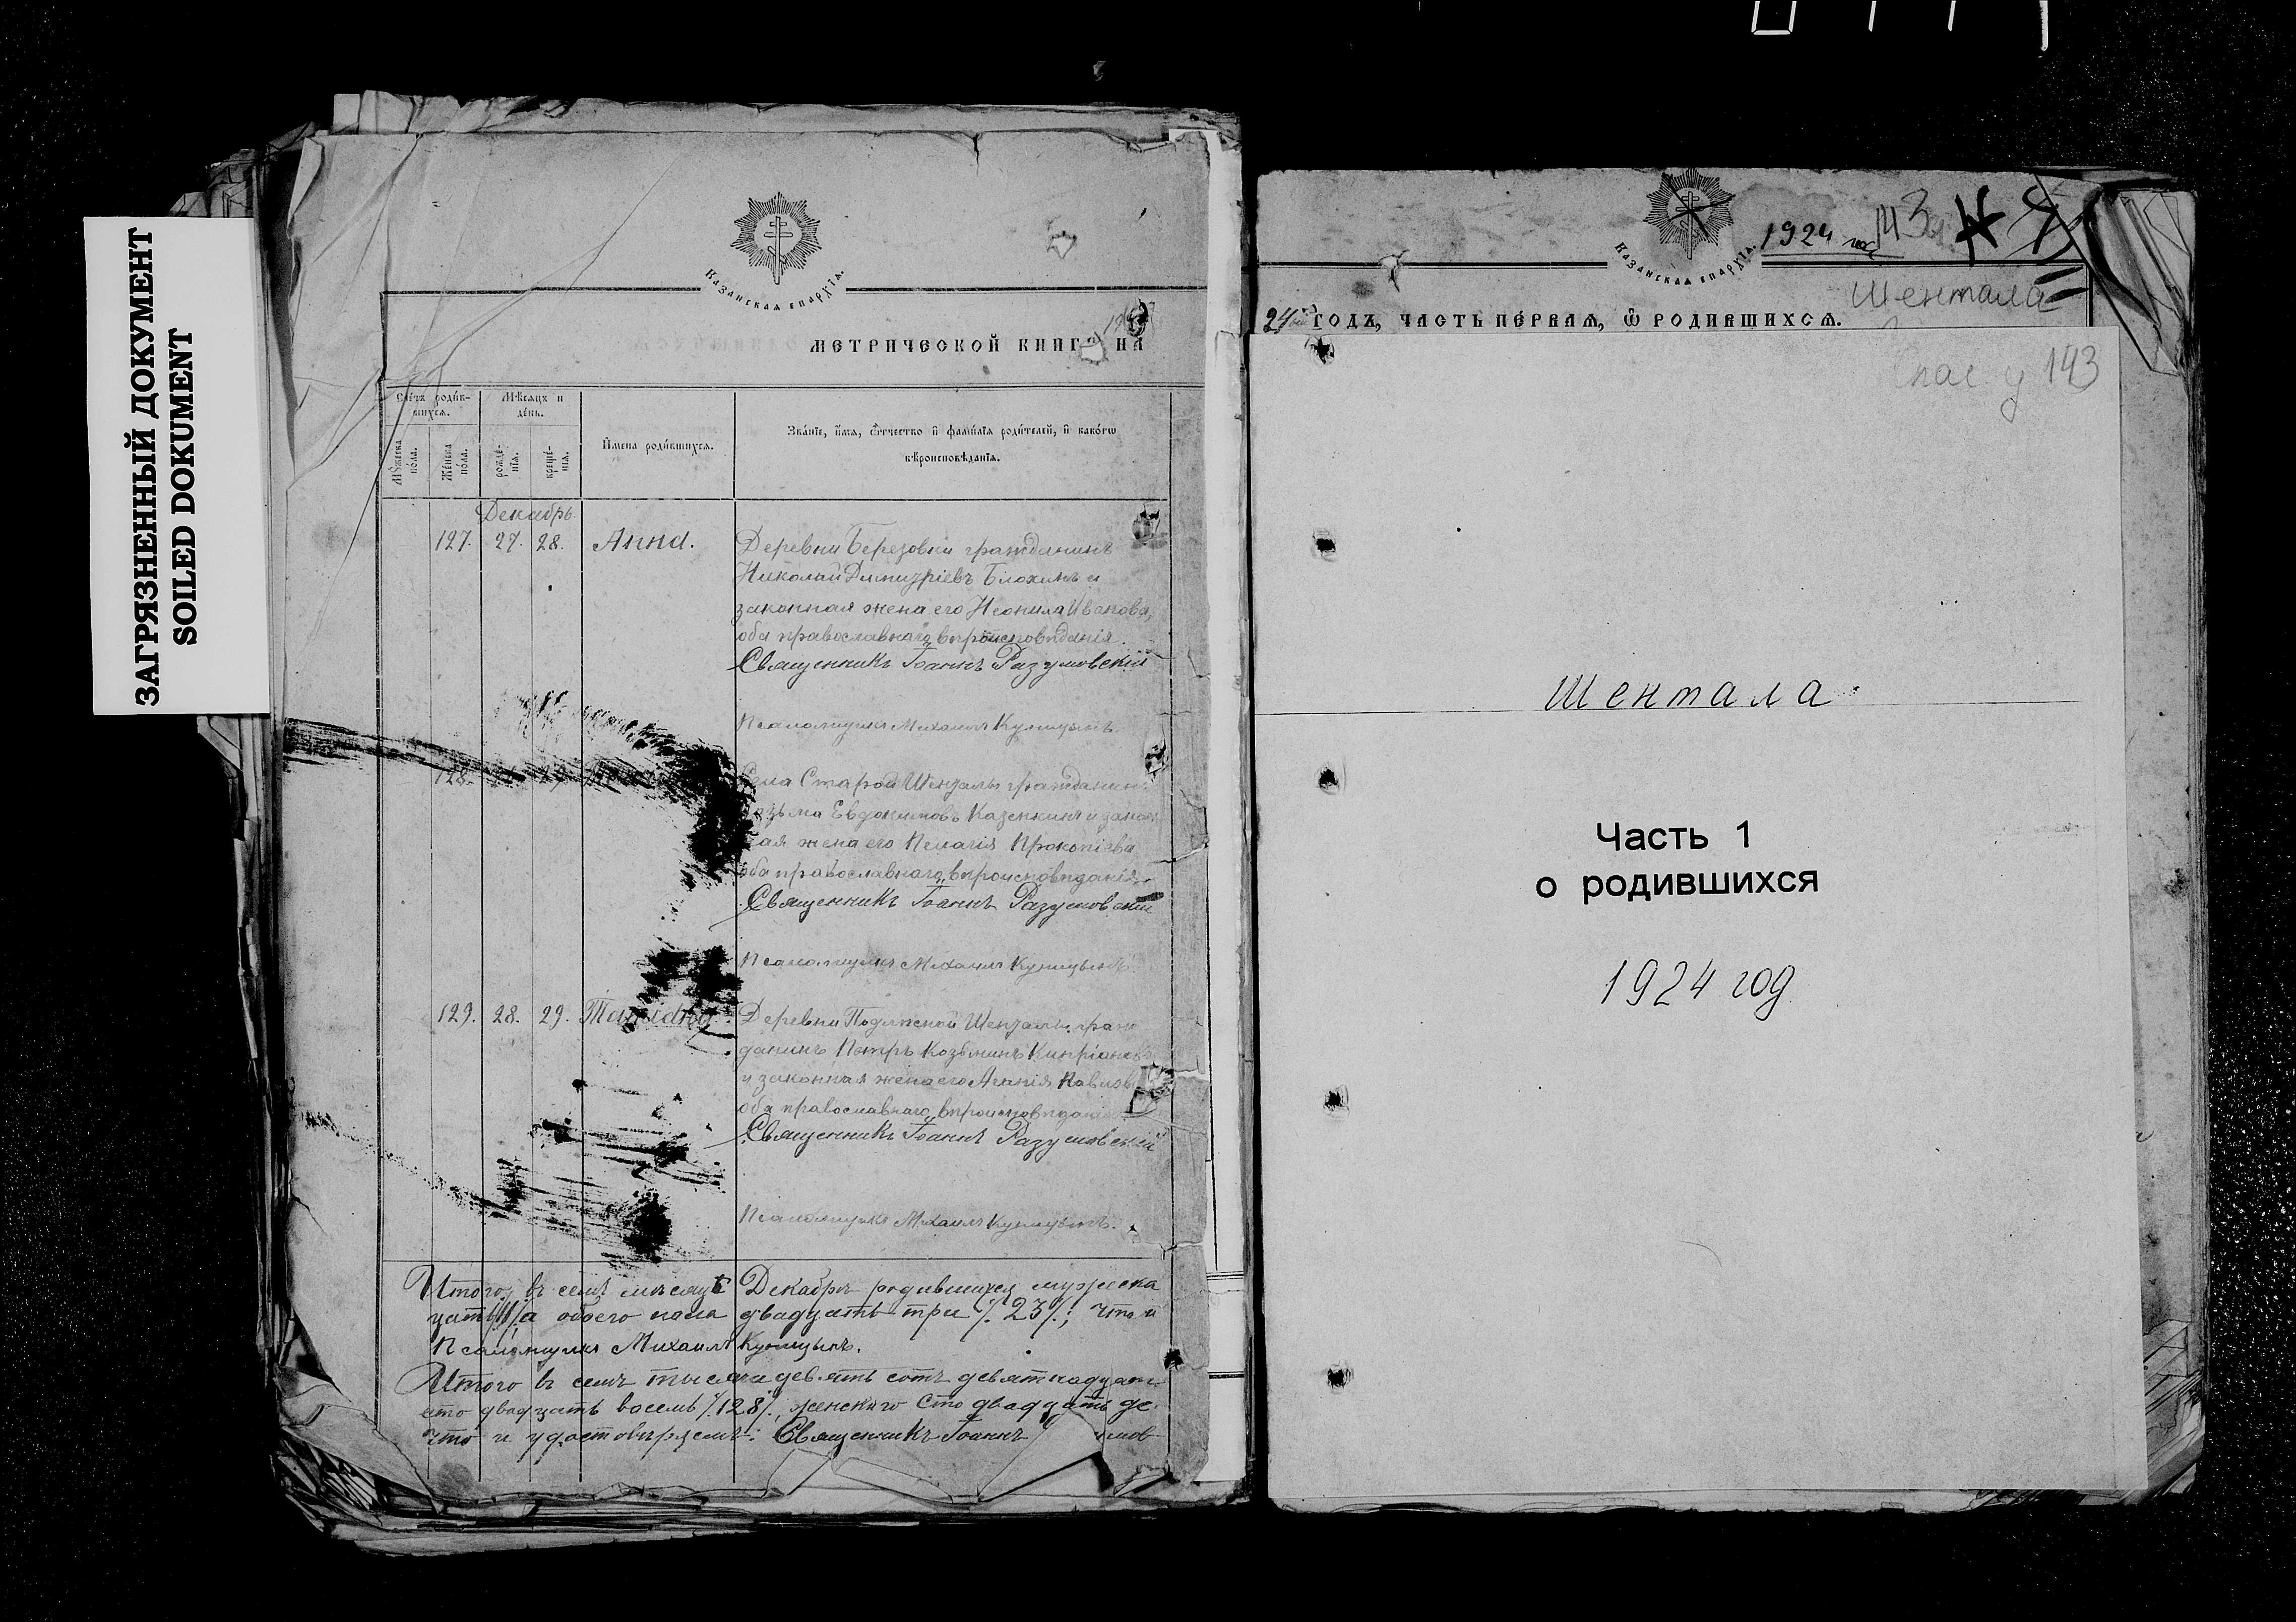 ЗАГРЯЗНЕННЫЙ ДОКУМЕНТ
SOILED DOKUMENT
Казанская епархїа.
МЕТРИЧЕСКОЙ КНИГИ НА
Счетъ родив-
шихся.
Мѣсяцъ и
день.
Мужеска
пола.
Женска
пола.
рожде-
нїя.
креще-
нїя.
Имена родившихся.
Званїе, имя, отчество и фамилїя родителей, и какого
вѣроисповѣданїя.
Декабрь
127. 27. 28. Анна.
Деревни Березовки гражданинъ
Николай Димитріевъ Блохинъ и
законная жена его Неонила Иванова,
оба православнаго вѣроисповѣданія.
Священникъ Іоаннъ Разумовскій
Псаломщикъ Михаилъ Куницынъ.
128. 29.
Села Старой Шенталы гражданинъ
Козьма Евдокимовъ Казенкинъ и закон
ная жена его Пелагія Прокопіева
оба православнаго вѣроисповѣданія.
Священникъ Іоаннъ Разумовскій
Псаломщикъ Михаилъ Куницынъ.
129. 28. 29. Татіана.
Деревни Подлѣсной Шенталы граж
данинъ Петръ Козьминъ Кипріановъ
и законная жена его Агапія Павлов
оба православнаго вѣроисповѣданія
Священникъ Іоаннъ Разумовскій
Псаломщикъ Михаилъ Куницынъ.
Итого въ семъ мѣсяцѣ Декабрѣ родившихся мужеска
цать а обоего пола двадцать три /.23/.; что и
Псаломщикъ Михаилъ Куницынъ.
Итого въ семъ тысяча девять сотъ девятнадцат
сто двадцать восемь /.128/., женскаго сто двадцать де
что и удостовѣряемъ: Священникъ Іоаннъ умов
Казанская епархїа.
1924 143
Шентала
24 ГОДЪ, ЧАСТЬ ПЕРВАЯ, Ѡ РОДИВШИХСЯ.
у 143
Шентала
Часть 1
о родившихся
1924 год